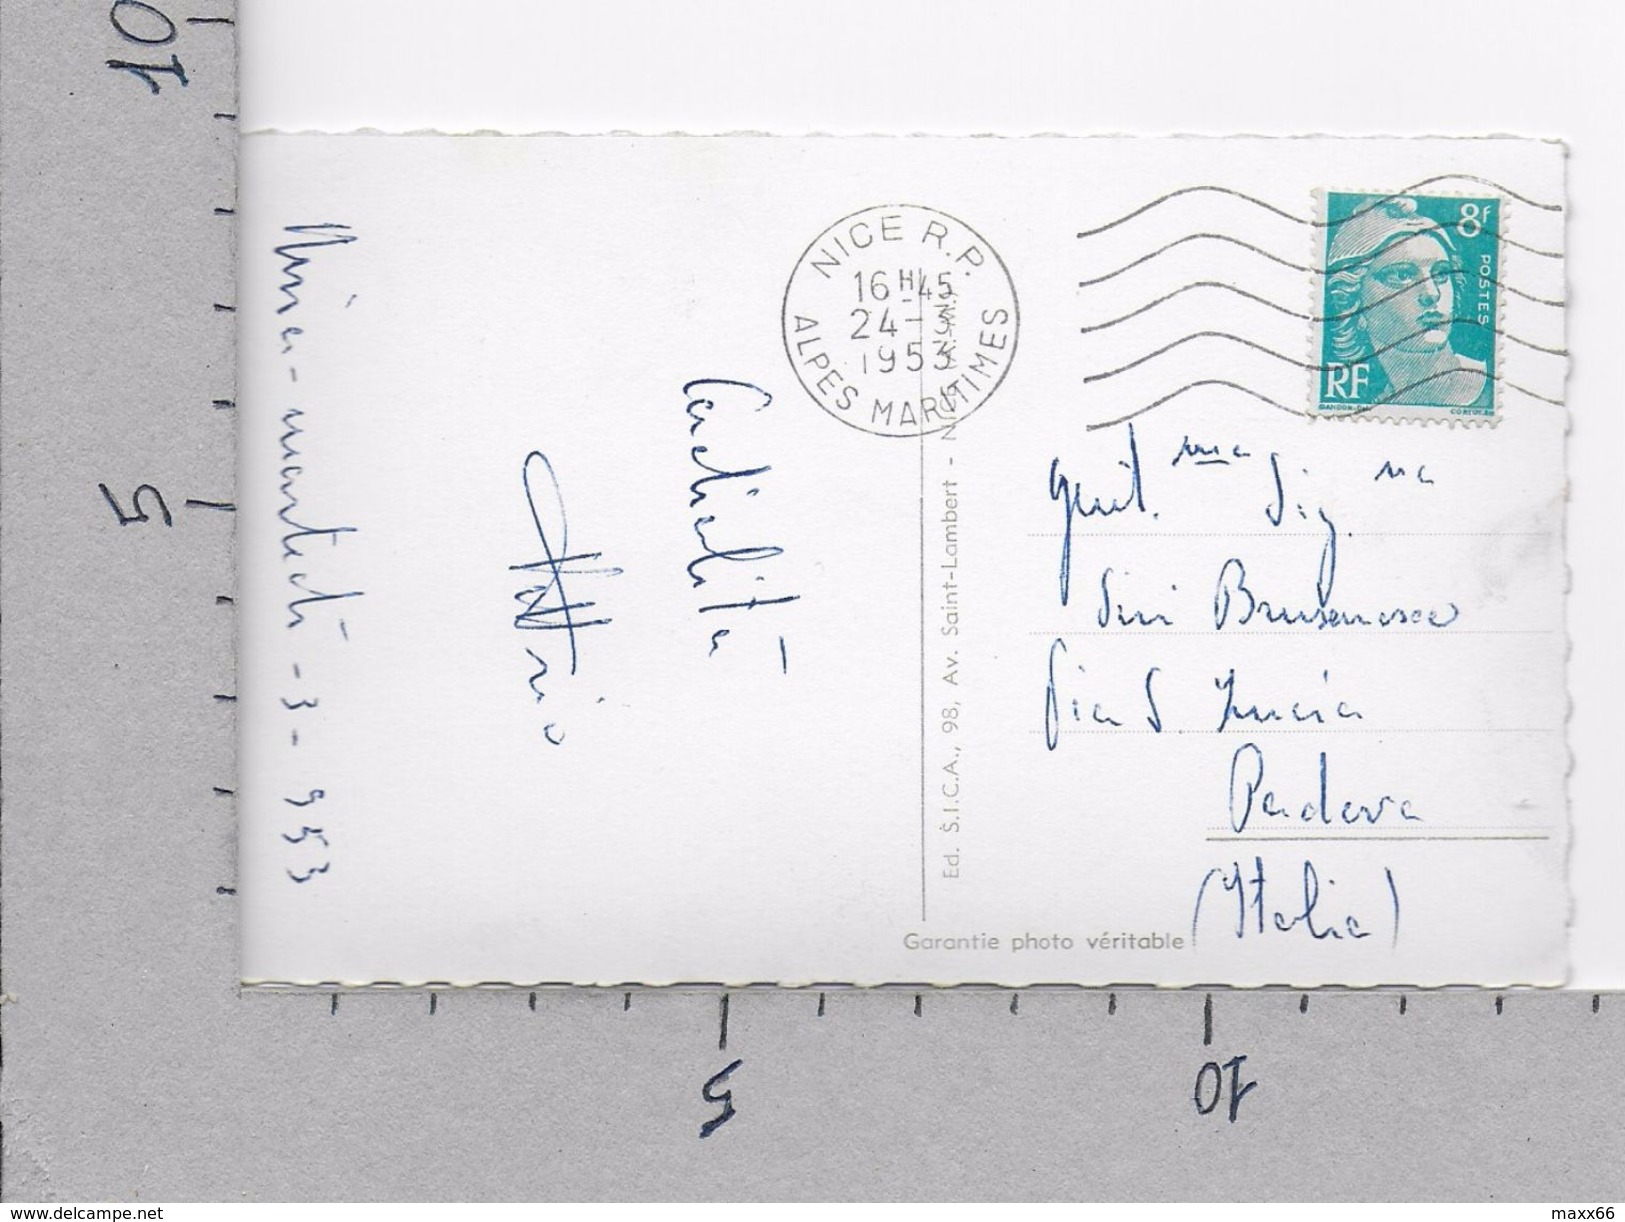 Nizza - martedì - 3 - 953
Cordialità
NICE R.P.
16 H 45
24 - 3
1953
ALPES MARITIMES
8f
POSTES
RF
GANDON-DEL
CORTOT-SC
Gent.ma Sig.na
Via S Lucia
Padova
(Italia)
Ed. S.I.C.A., 98, Av. Saint-Lambert - NICE (A.-M.)
Garantie photo véritable
10
5
5
10
www.delcampe.net
maxx66